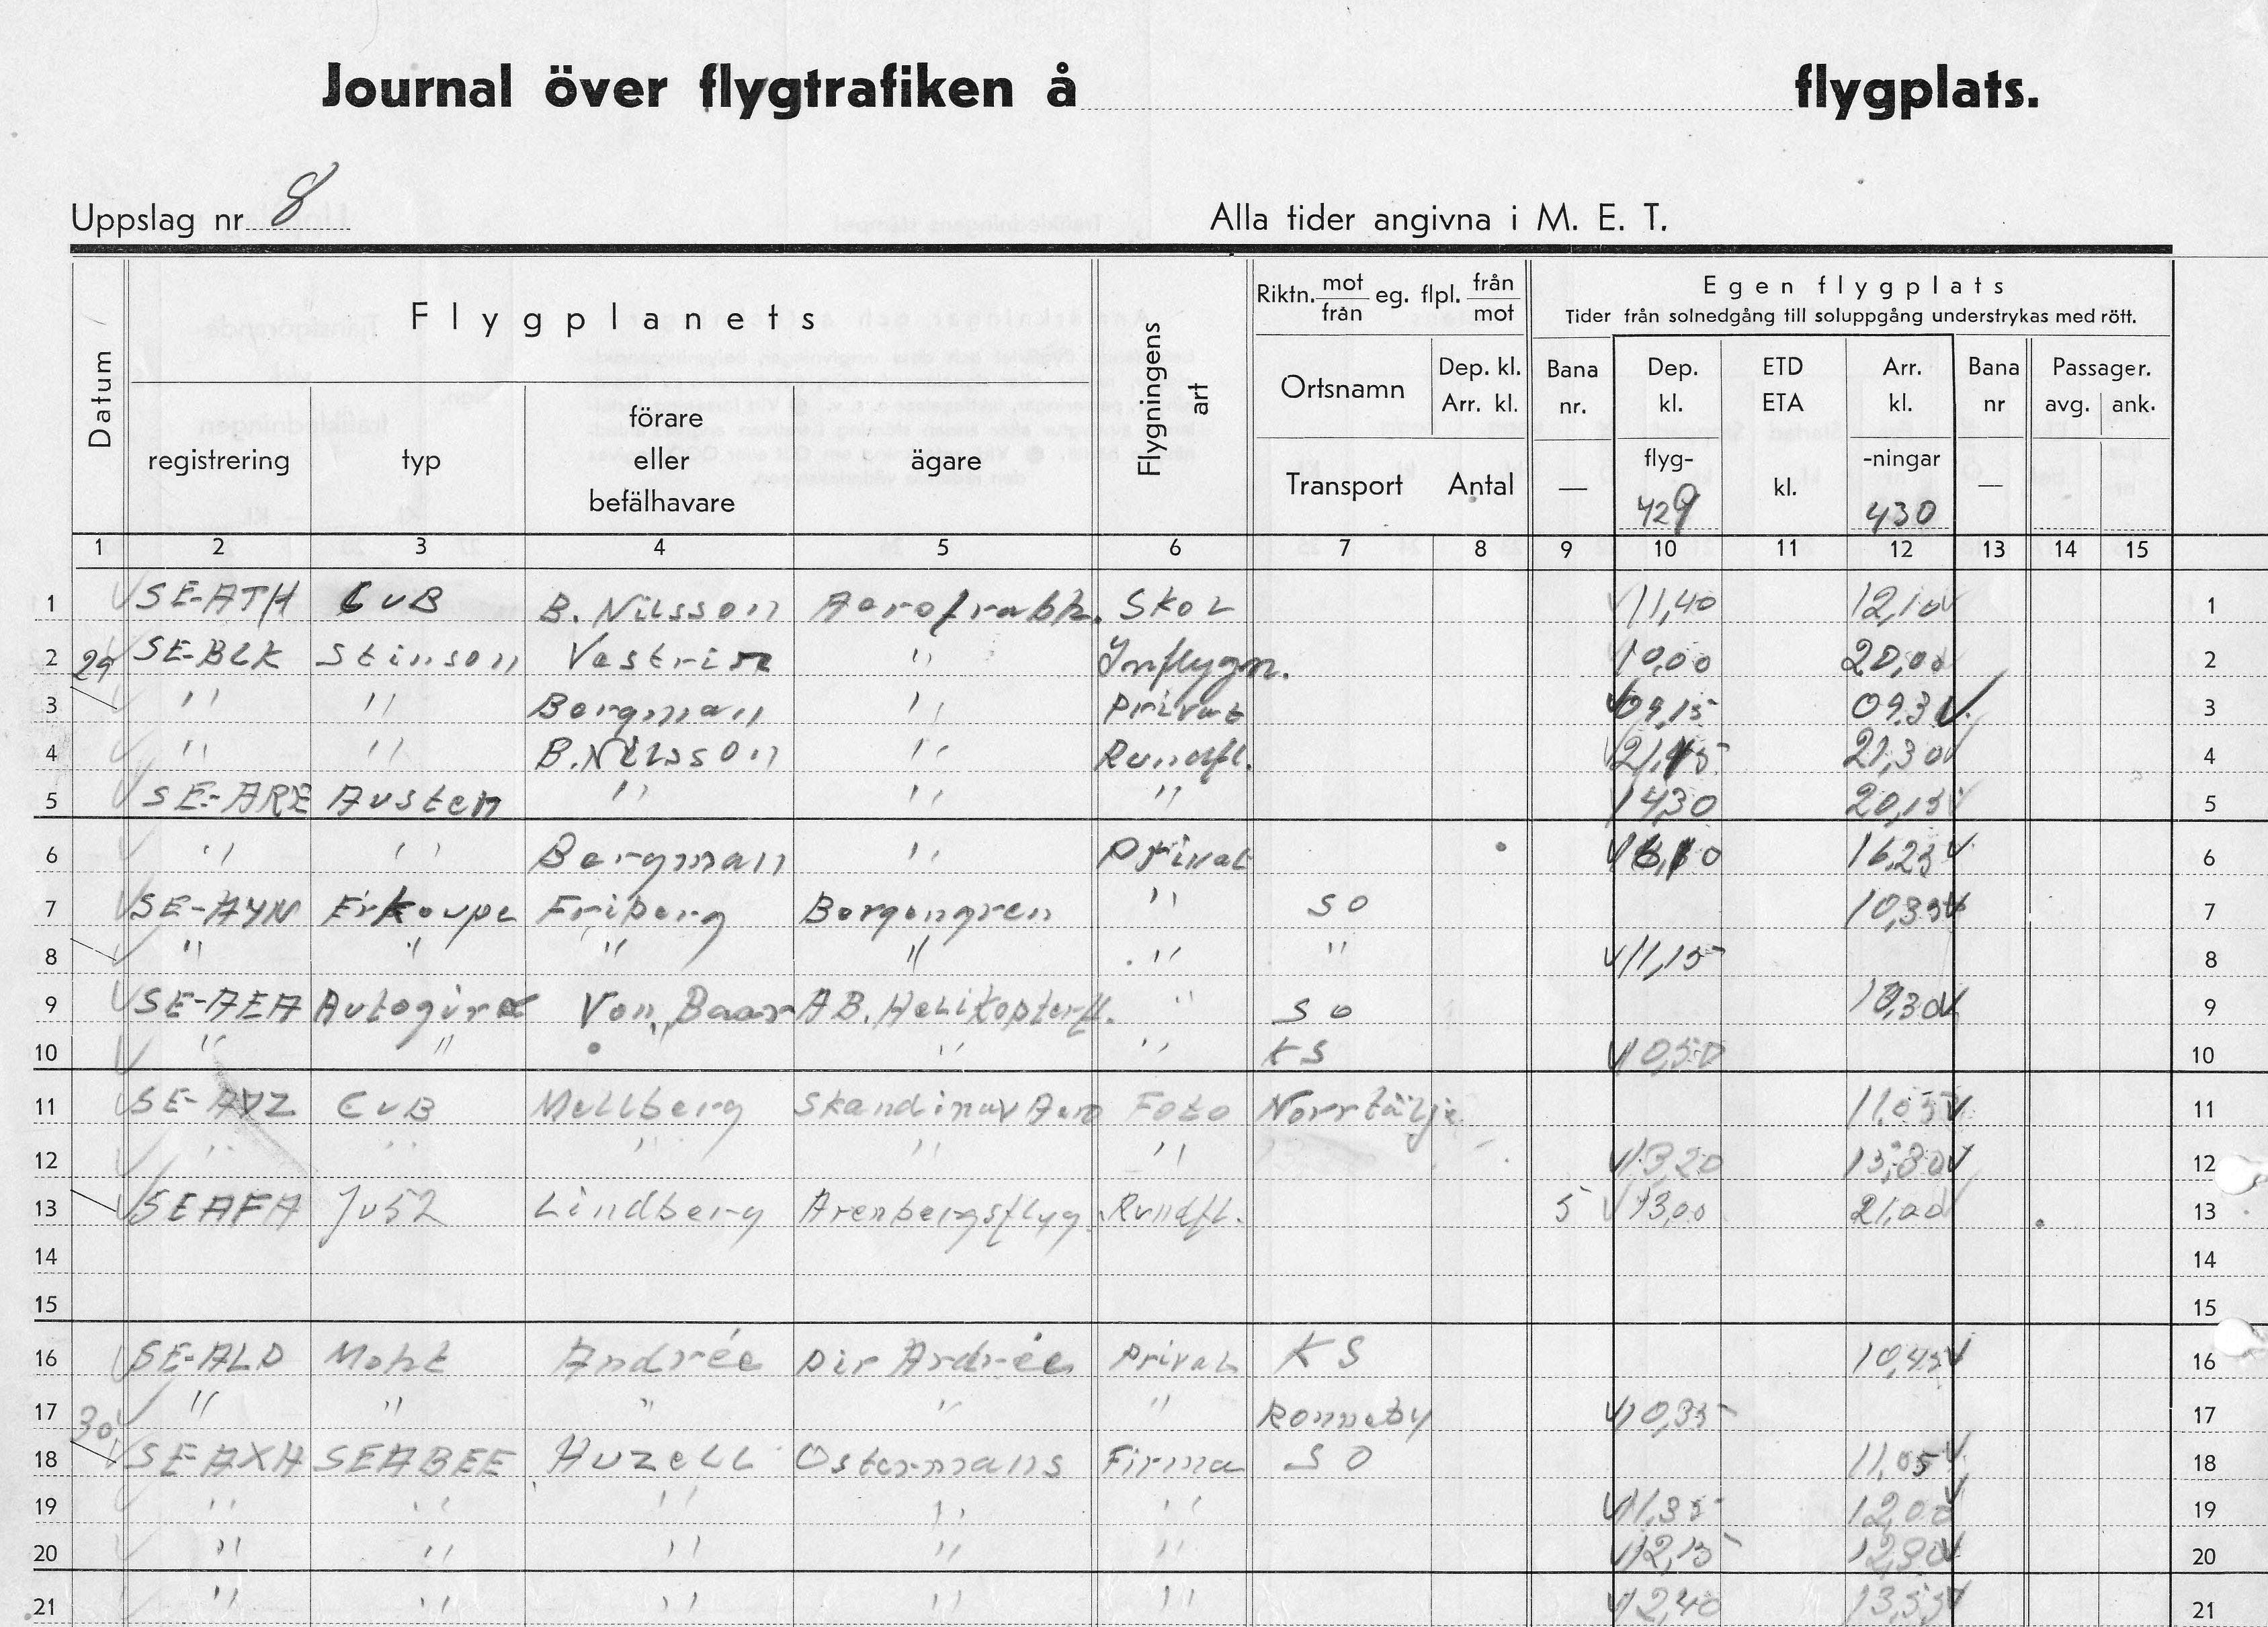 Journal över flygtrafiken å flygplats.
Uppslag nr 8 Alla tider angivna i M. E. T.
Datum
Flygplanets
Flygningens art
Riktn. mot från eg. flpl. från mot
Egen flygplats
Tider från solnedgång till soluppgång understrykas med rött.
registrering typ förare eller befälhavare ägare
Ortsnamn Dep. kl. Arr. kl.
Bana nr. Dep. kl. ETD ETA Arr. kl. Bana nr Passager. avg. ank.
Transport Antal — flyg- kl. -ningar —
429 430
1 2 3 4 5 6 7 8 9 10 11 12 13 14 15
1 SE-ATH CUB B. Nilsson Skol 11,40 12,10 1
2 29 SE-BLK Stinson " Inflygn. 10,00 20,00 2
3 " " Bergman " Privat 09,15 09,30 3
4 " " B. Nilsson " Rundfl. 21,15 21,30 4
5 SE-ARE Auster " " " 14,30 20,15 5
6 " " Bergman " Privat 16,10 16,25 6
7 SE-AYN Erkoupe Friberg Borgengren " SO 10,35 7
8 " " " " " " 11,15 8
9 SE-AEA Autogiro Von Baar AB. Helikopterfl. " SO 9
10 " " " " " KS 10,50 10
11 CUB Mellberg Skandinav Aero Foto Norrtälje 11,05 11
12 " " " " " 13,20 13,30 12
13 SEAFA Ju52 Lindberg Arenbergsflyg. Rundfl. 5 13,00 21,00 13
14 14
15 15
16 SE-ALD Moht Andrée Dir Andrée Privat KS 10,45 16
17 30 " " " " " Ronneby 10,35 17
18 SE-AXH SEABEE Huzell Ostermans Firma SO 11,05 18
19 " " " " " 11,35 12,00 19
20 " " " " " 12,15 12,30 20
21 " " " " " 12,40 13,55 21